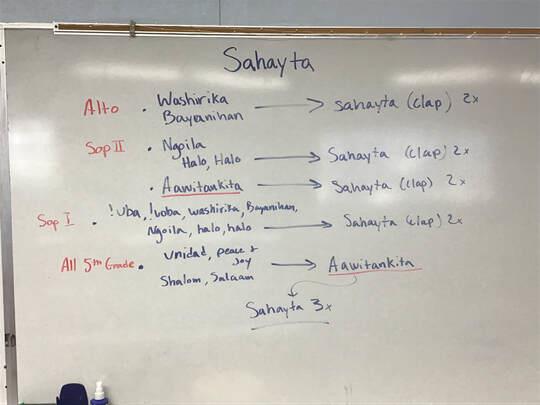 Sahayta
Alto • Washirika → sahayta (clap) 2x
Bayanihan
Sop II • Ngoila
Halo, Halo → Sahayta (clap) 2x
• Aawitankita → Sahayta (clap) 2x
Sop I • !uba, !uoba, washirika, Bayanihan,
Ngoila, halo, halo → Sahayta (clap) 2x
All 5th Grade • unidad, peace &
Joy
Shalom, Salaam → Aawitankita
Sahayta 3x